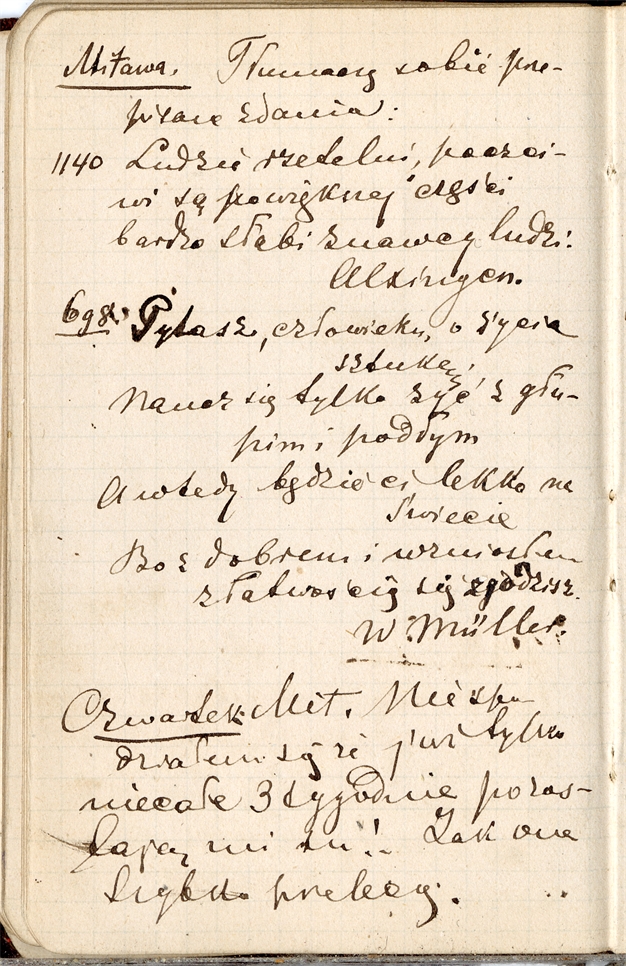 Mitawa. Tłumaczę sobie prze-
pisane zdania:
1140 Ludzie rzetelni, poczci-
wi są po większej części
bardzo słabi znawcy ludzi.
Alxinger.
698. Pytasz, człowieku, o życia
sztukę;
Naucz się tylko żyć z głu-
pim i podłym
A wtedy będzie ci lekko na
świecie
Bo z dobrem i wzniosłem
z łatwością się zgodzisz.
W. Müller.
Czwartek Mit. Nie spo-
działem się że już tylko
niecałe 3 tygodnie pozos-
łają mi tu! Jak one
szybko przelecą.